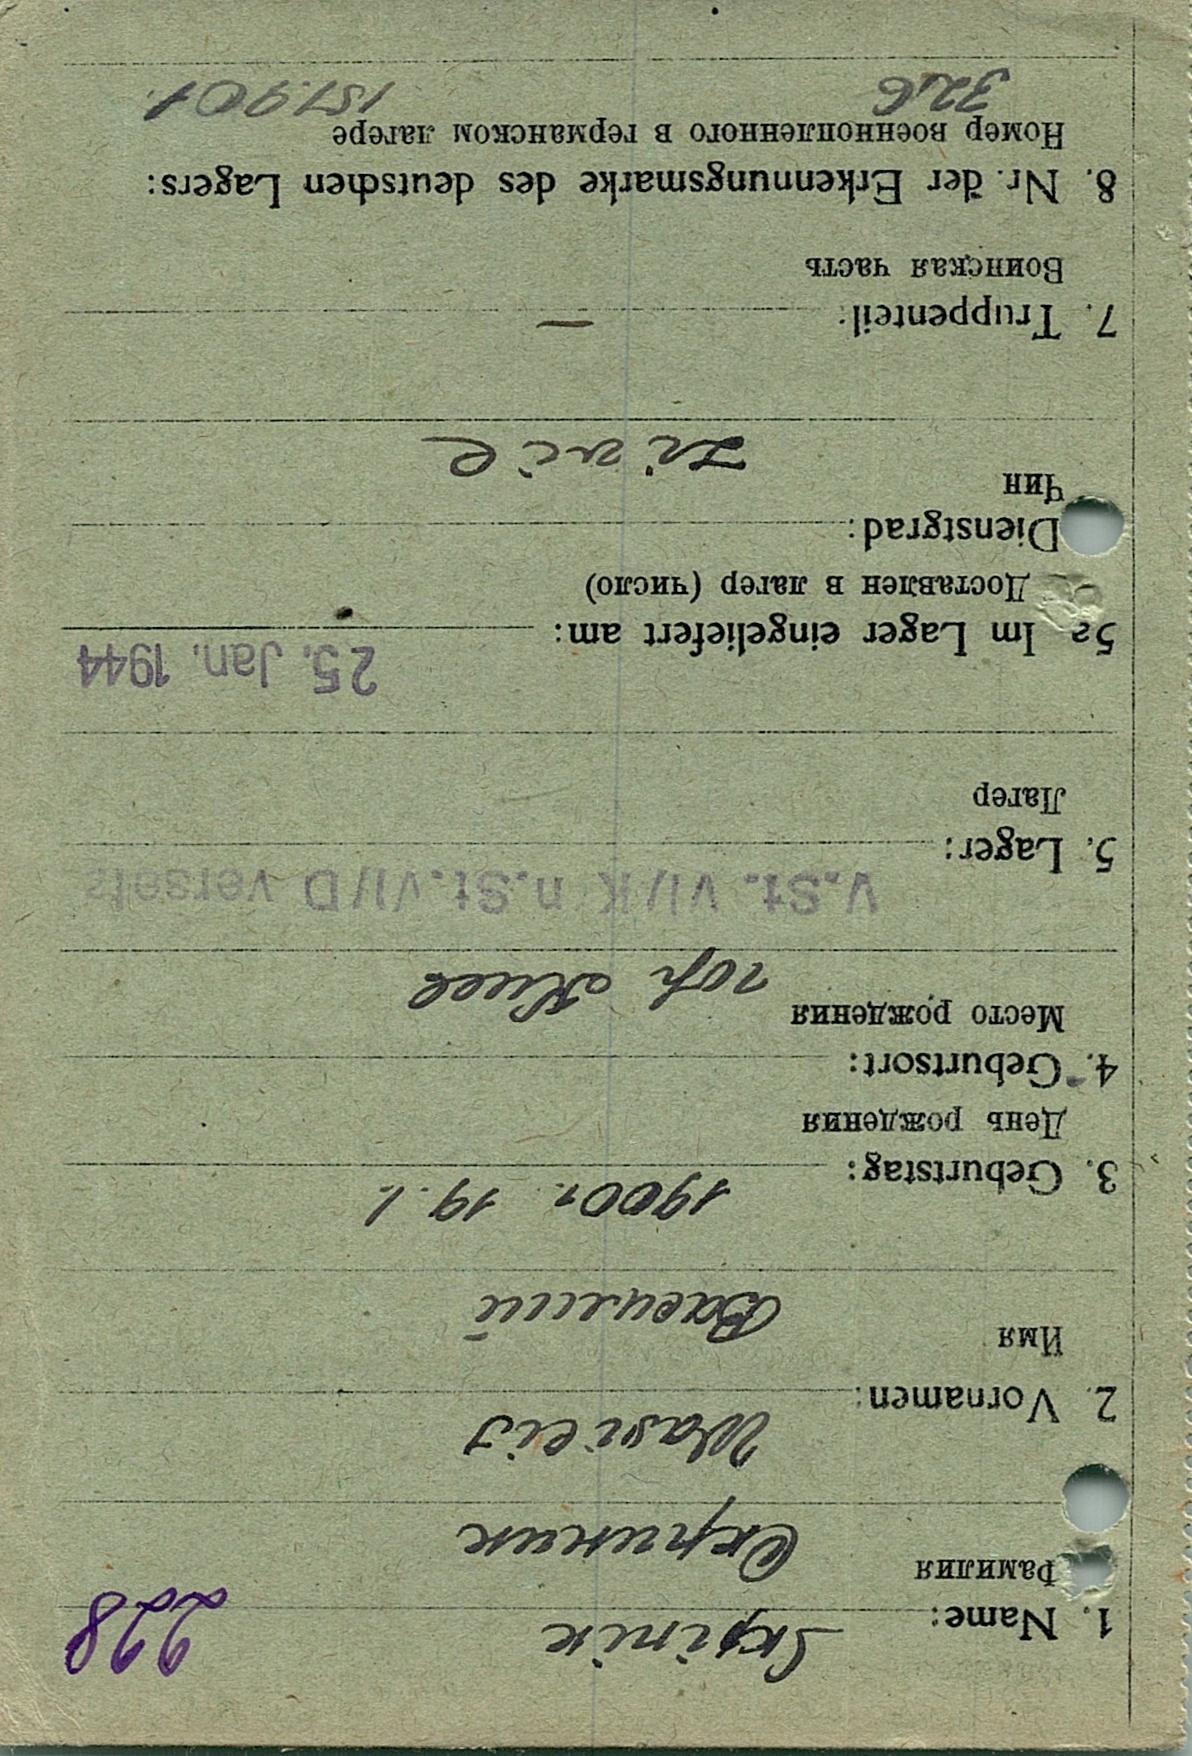 228
1. Name: Skrinik
Фамилия Скриник
Wasilis
2. Vornamen:
Имя Василий
1900 г. 19.1.
3. Geburtstag:
День рождения
4. Geburtsort:
Место рождения гор Киев
V.St. VI/K n.St.VI/D versetzt
5. Lager:
Лагер
25. Jan. 1944
5a Im Lager eingeliefert am:
Доставлен в лагер (число)
Dienstgrad:
Чин Zivil
7. Truppenteil: —
Воинская часть
8. Nr. der Erkennungsmarke des deutschen Lagers:
Номер военнопленного в германском лагере
326 151901